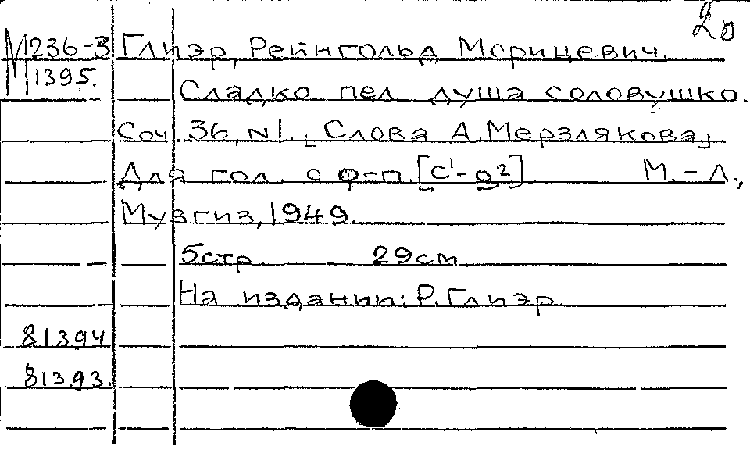 20
М236-3 Глиэр, Рейнгольд Морицевич.
1395.
Сладко пел душа соловушко.
Соч. 36, №1. [Слова А. Мерзлякова]
Для гол. с ф-п. [c¹-g²] М.-Л.,
Музгиз, 1949.
5 стр. 29 см
На издании: Р. Глиэр
81394
81393.